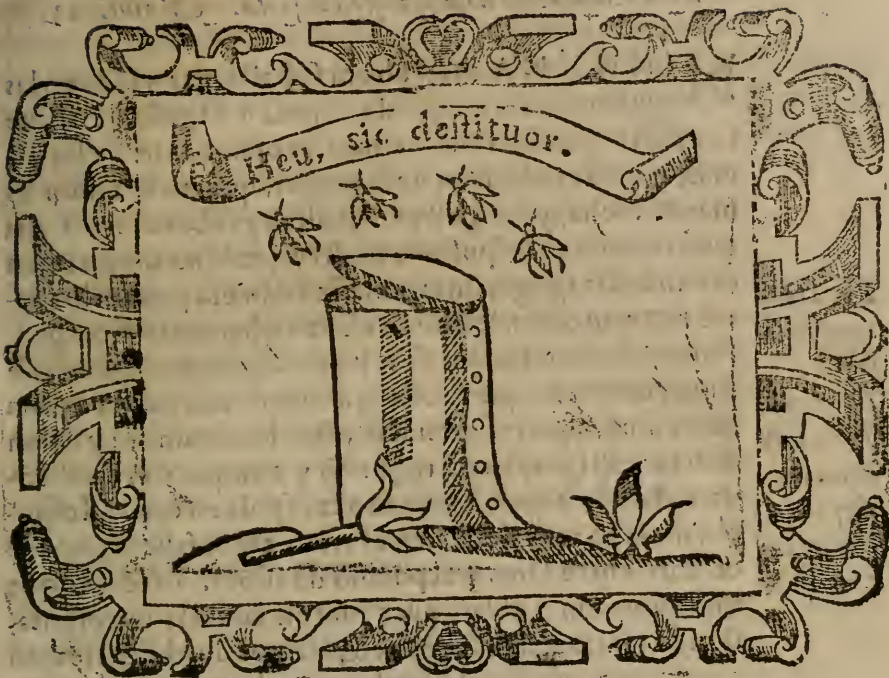 Heu, sic deſtituor.